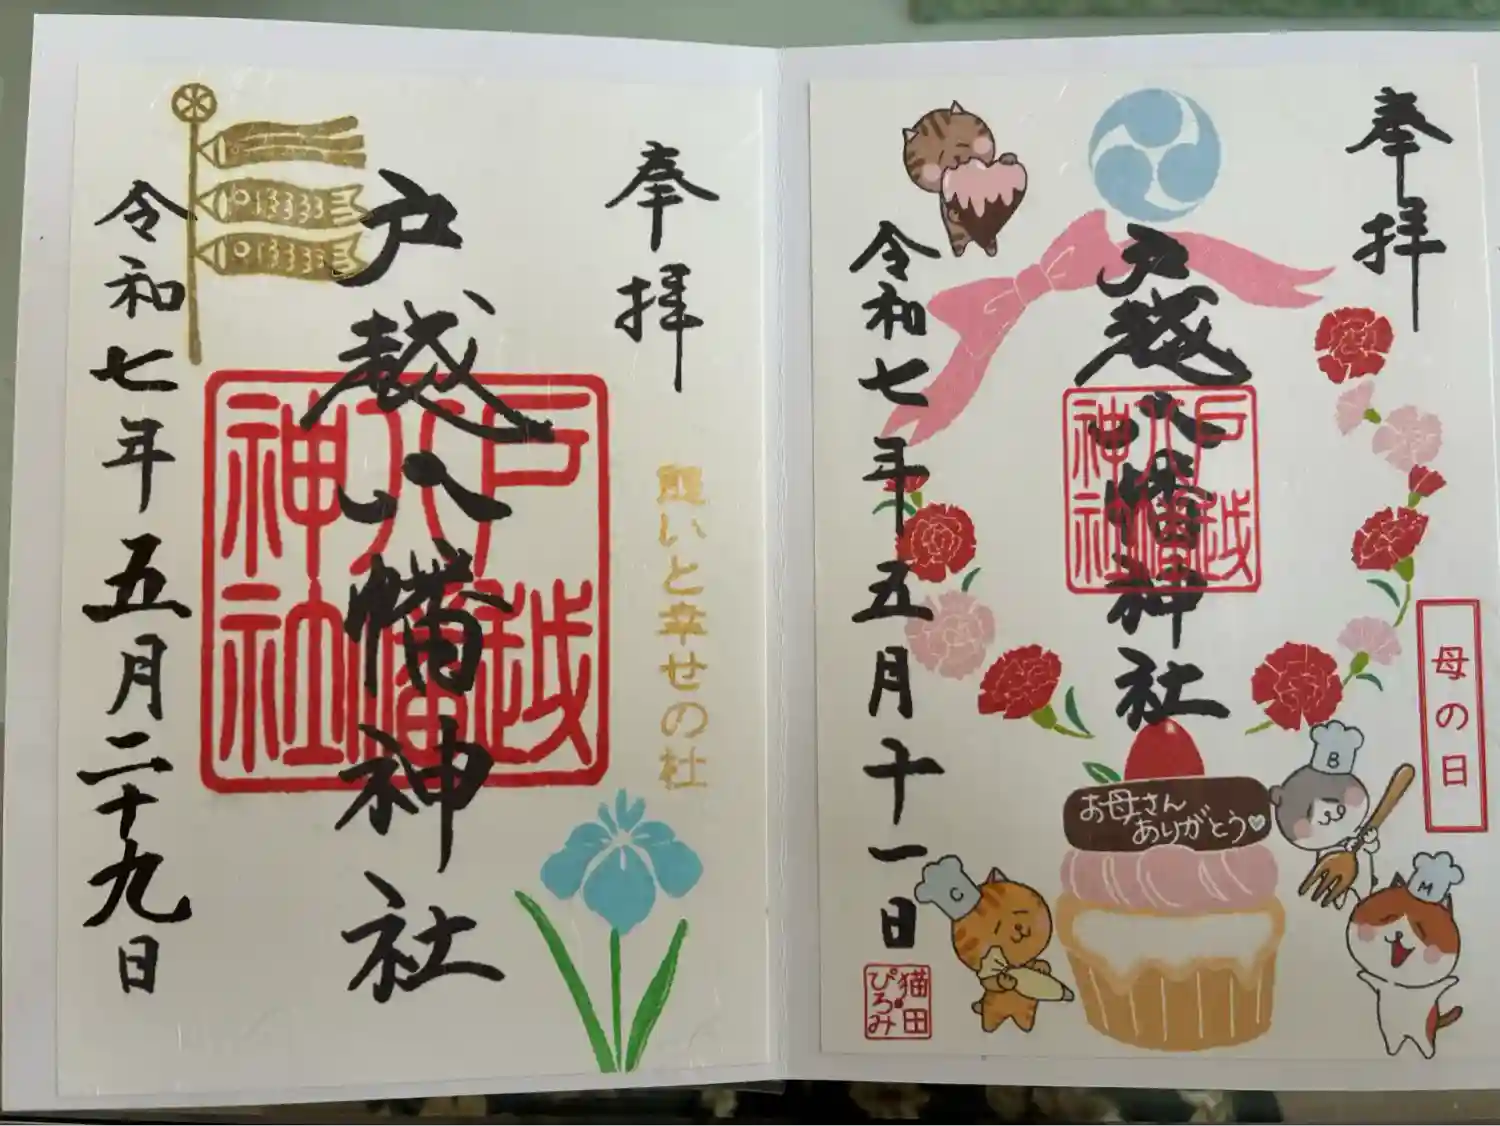 奉拝
戸越八幡神社
戸越
八幡
神社
令和七年五月二十九日
憩いと幸せの杜
奉拝
戸越八幡神社
戸越
八幡
神社
令和七年五月十一日
母の日
お母さん
ありがとう♡
B
C
M
猫田
ぴろみ